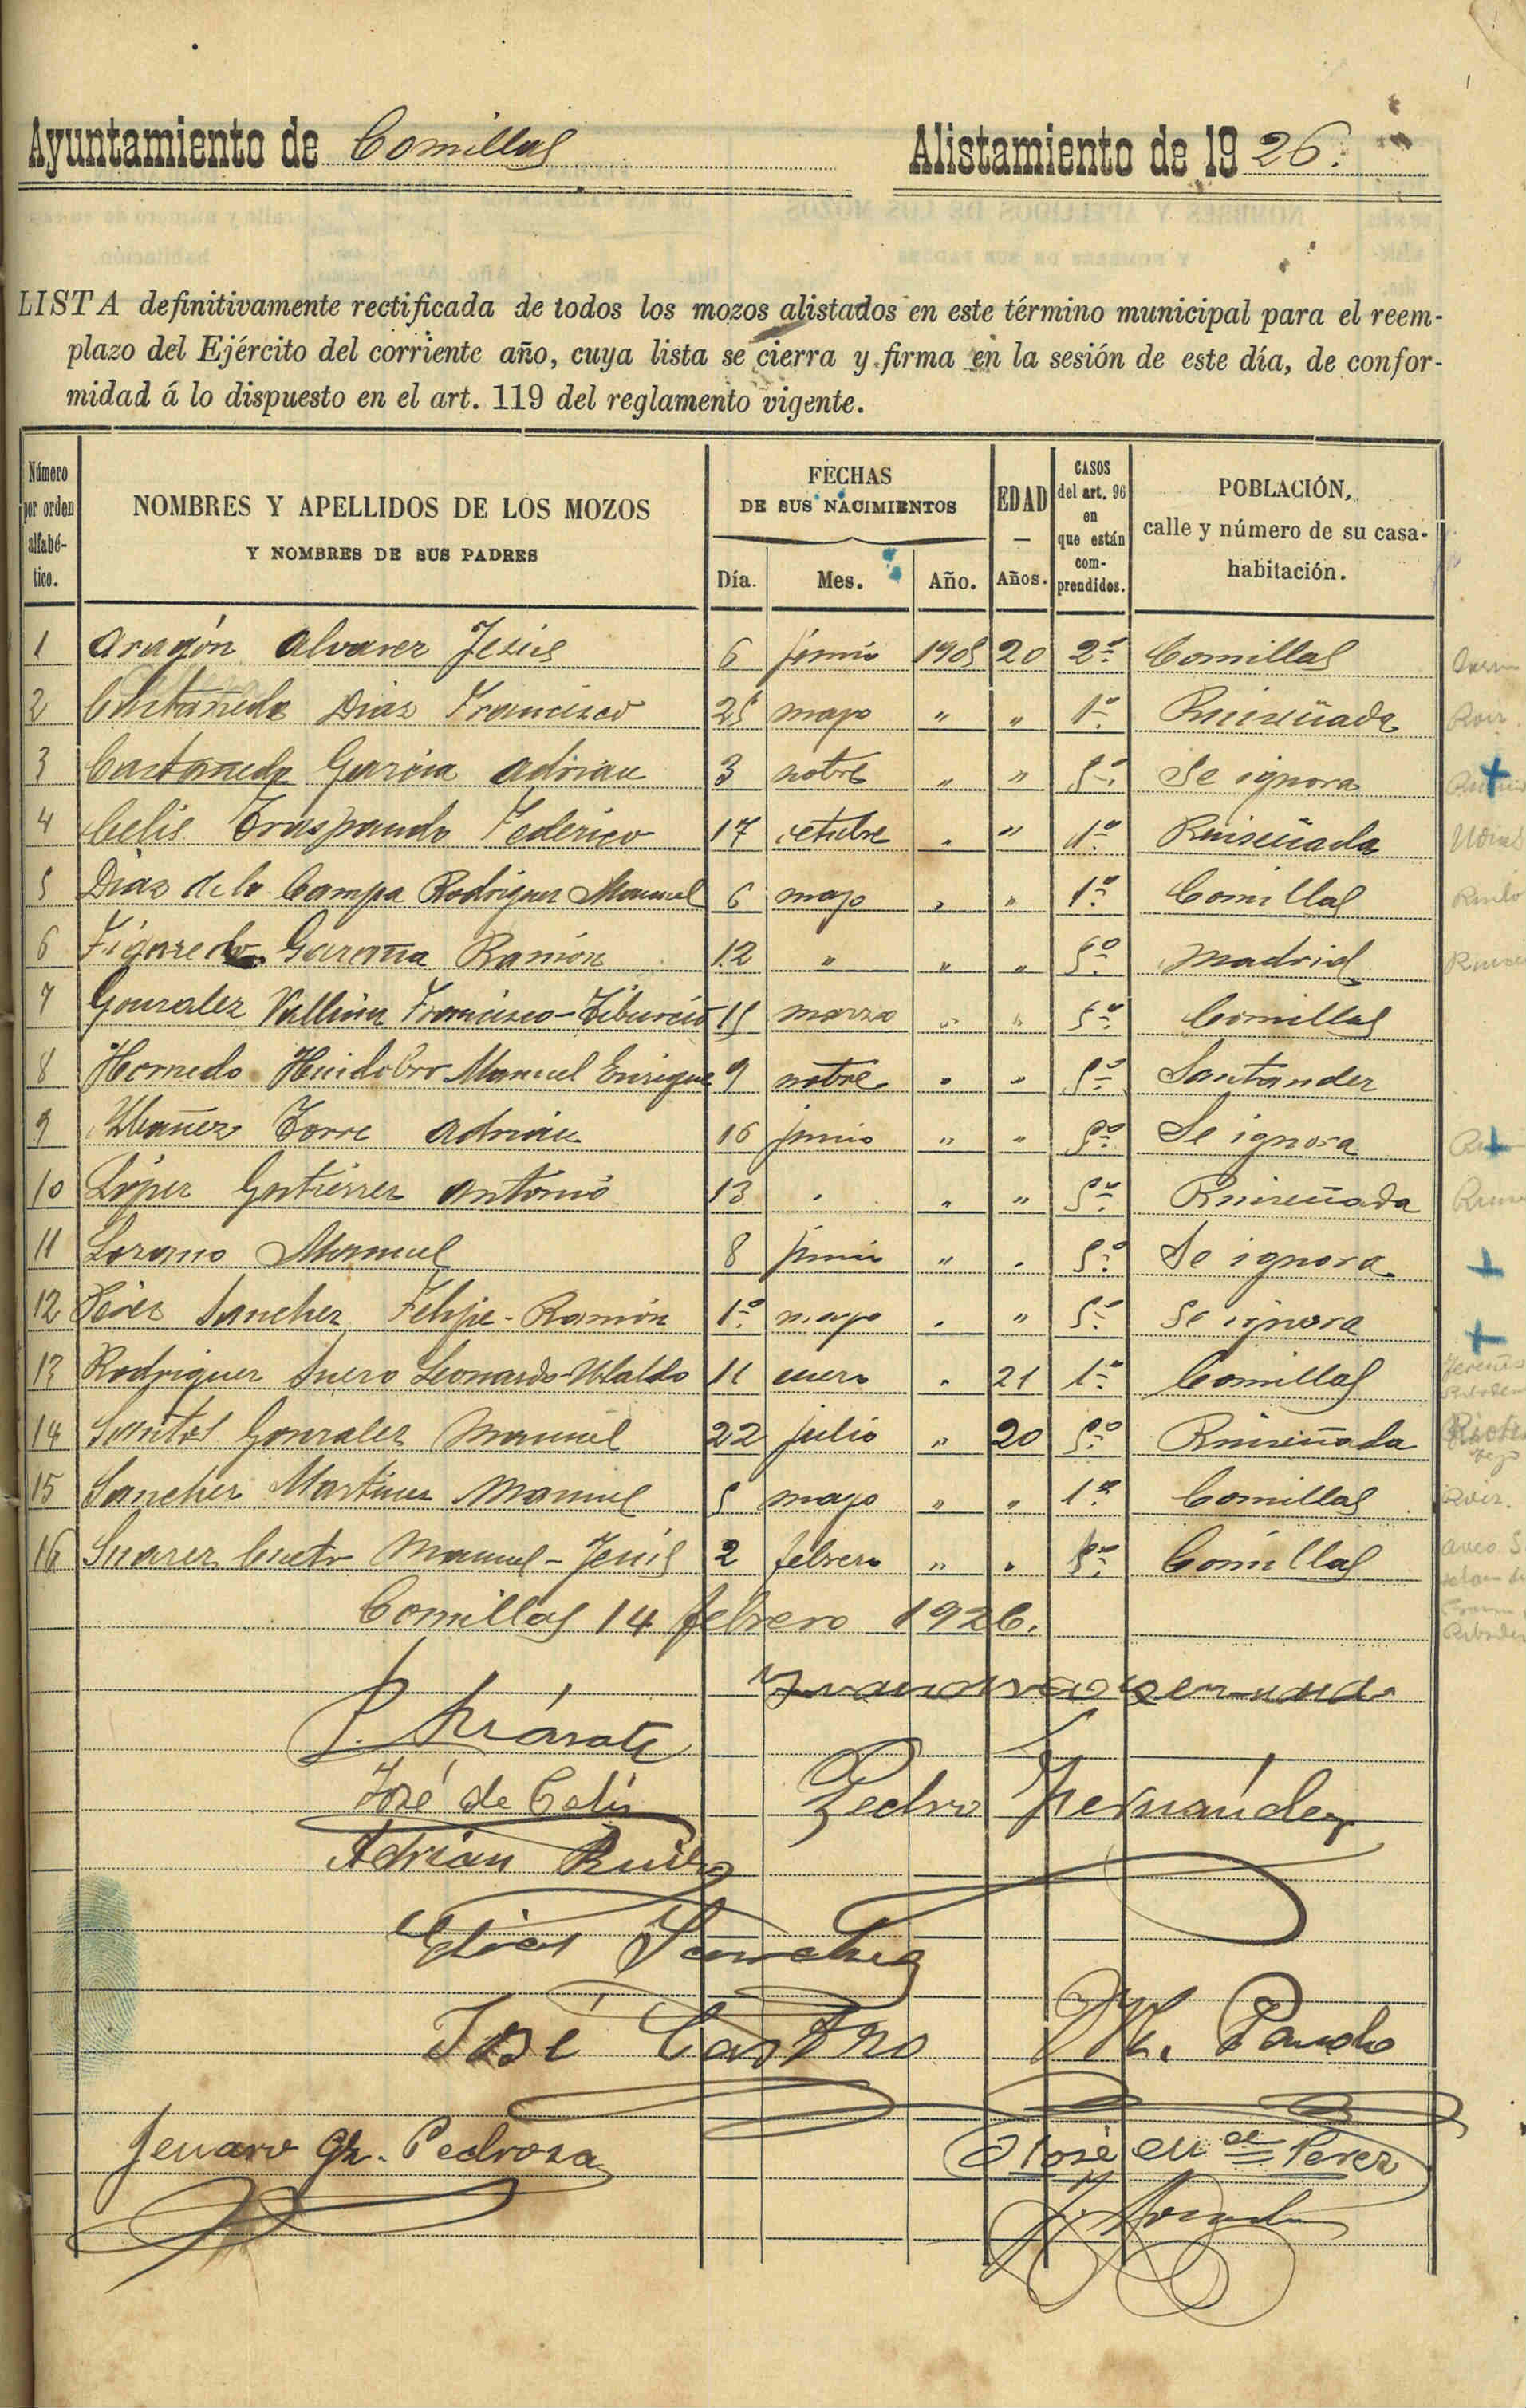 Ayuntamiento de Comillas Alistamiento de 1926.
LISTA definitivamente rectificada de todos los mozos alistados en este término municipal para el reem-
plazo del Ejército del corriente año, cuya lista se cierra y firma en la sesión de este día, de confor-
midad á lo dispuesto en el art. 119 del reglamento vigente.
Número por orden alfabé- tico. NOMBRES Y APELLIDOS DE LOS MOZOS Y NOMBRES DE SUS PADRES FECHAS DE SUS NACIMIENTOS Día. Mes. Año. EDAD — Años. CASOS del art. 96 en que están com- prendidos. POBLACIÓN, calle y número de su casa- habitación.
1 Aragón Alvarez Jesús 6 junio 1905 20 2º Comillas
2 Castañeda Diaz Francisco 25 mayo " " 1º Ruiseñada
3 Castañeda Garcia Adrian 3 notre " " 5º Se ignora
4 Celis Traspando Federico 17 octubre " " 1º Ruiseñada
5 Diaz de la Campa Rodriguez Manuel 6 mayo " " 1º Comillas
6 Figaredo Ramón 12 " " " 5º Madrid
7 Gonzalez Vallina Francisco-Tiburcio 15 marzo " " 5º Comillas
8 Hornedo Huidobro Manuel Enrique 9 notbre " " 5º Santander
9 Ybañez Torre Adrian 16 junio " " 5º Se ignora
10 López Gutiérrez Antonio 13 " " " 5º Ruiseñada
11 Lozano Manuel 8 junio " " 5º Se ignora
12 Pérez Sanchez Felipe-Ramón 1º mayo " " 5º Se ignora
13 Rodriguez Suero Leonardo-Ubaldo 11 enero " 21 1º Comillas
14 Santos Gonzalez Manuel 22 julio " 20 5º Ruiseñada
15 Sanchez Martinez Manuel 5 mayo " " 1º Comillas
16 Suarez Cueto Manuel-Jesús 2 febrero " " 5º Comillas
Comillas 14 febrero 1926.
José de Celis Pedro Fernández
Adrián Ruiz
Elias Sanchez
José Castro M. Pando
Jenaro Gz. Pedrosa José Perez